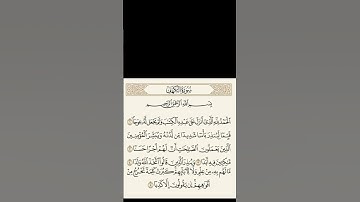 سورة الكهف
بسم الله الرحمن الرحيم
الحمد لله الذي أنزل على عبده الكتب ولم يجعل له عوجا ١
قيما لينذر بأسا شديدا من لدنه ويبشر المؤمنين
الذين يعملون الصلحت أن لهم أجرا حسنا ٢
مكثين فيه أبدا ٣ وينذر الذين قالوا اتخذ الله ولدا ٤
ما لهم به من علم ولا لآبائهم كبرت كلمة تخرج من
أفوههم إن يقولون إلا كذبا ٥